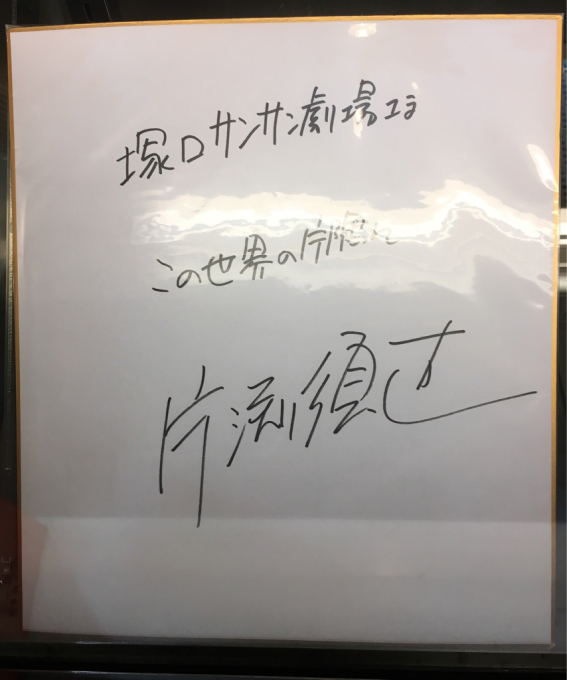 塚口サンサン劇場さま
この世界の片隅に
片渕須直